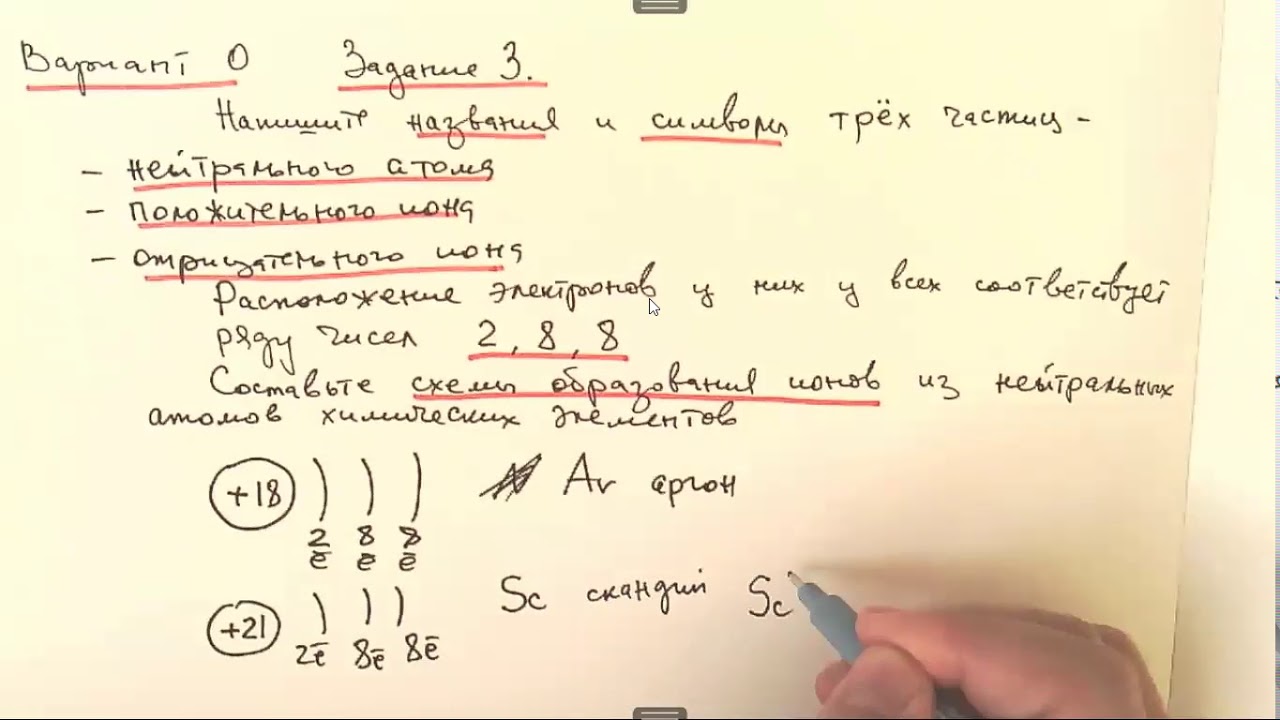 Вариант 0 Задание 3.
Напишите названия и символы трёх частиц -
- нейтрального атома
- положительного иона
- отрицательного иона
Расположение электронов у них у всех соответствует
ряду чисел 2, 8, 8
Составьте схемы образования ионов из нейтральных
атомов химических элементов
+18 ) ) ) Ar аргон
2 8 8
ē ē ē
+21 ) ) ) Sc скандий Sc
2ē 8ē 8ē